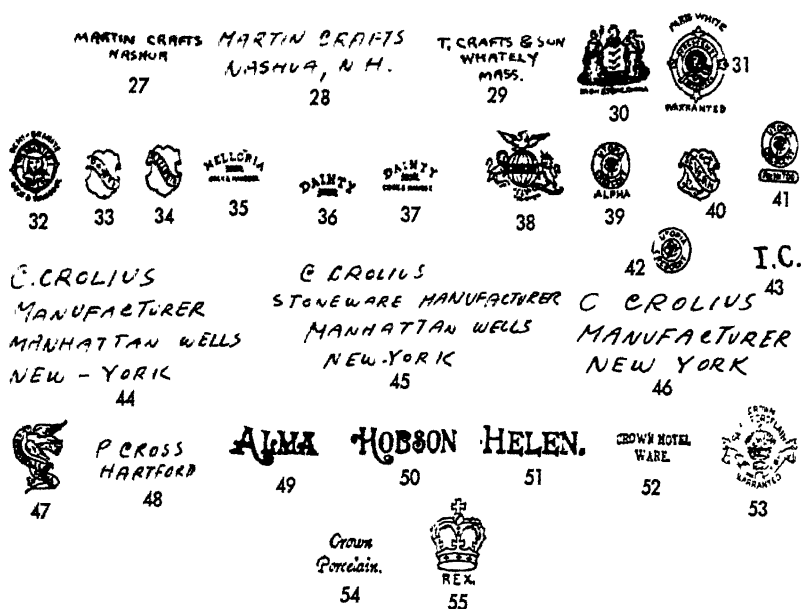 MARTIN CRAFTS
NASHUA
27
MARTIN CRAFTS
NASHUA, N H.
28
T. CRAFTS & SON
WHATELY
MASS.
29
30
PARIS WHITE
WARRANTED
31
32
33
34
MELLORIA
35
DAINTY
36
DAINTY
37
38
ALPHA
39
40
41
42
I.C.
43
C. CROLIUS
MANUFACTURER
MANHATTAN WELLS
NEW - YORK
44
C CROLIUS
STONEWARE MANUFACTURER
MANHATTAN WELLS
NEW-YORK
45
C CROLIUS
MANUFACTURER
NEW YORK
46
47
P CROSS
HARTFORD
48
ALMA
49
HOBSON
50
HELEN.
51
CROWN HOTEL
WARE.
52
CROWN
PORCELAIN
WARRANTED
53
Crown
Porcelain.
54
REX.
55